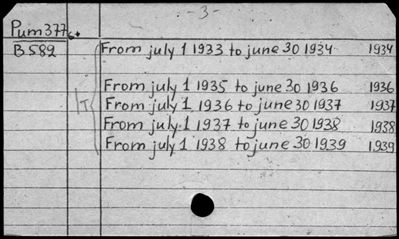 - 3 -
Pum 377
B 582
From july 1 1933 to june 30 1934 1934
From july 1 1935 to june 30 1936 1936
From july 1 1936 to june 30 1937 1937
From july 1 1937 to june 30 1938 1938
From july 1 1938 to june 30 1939 1939